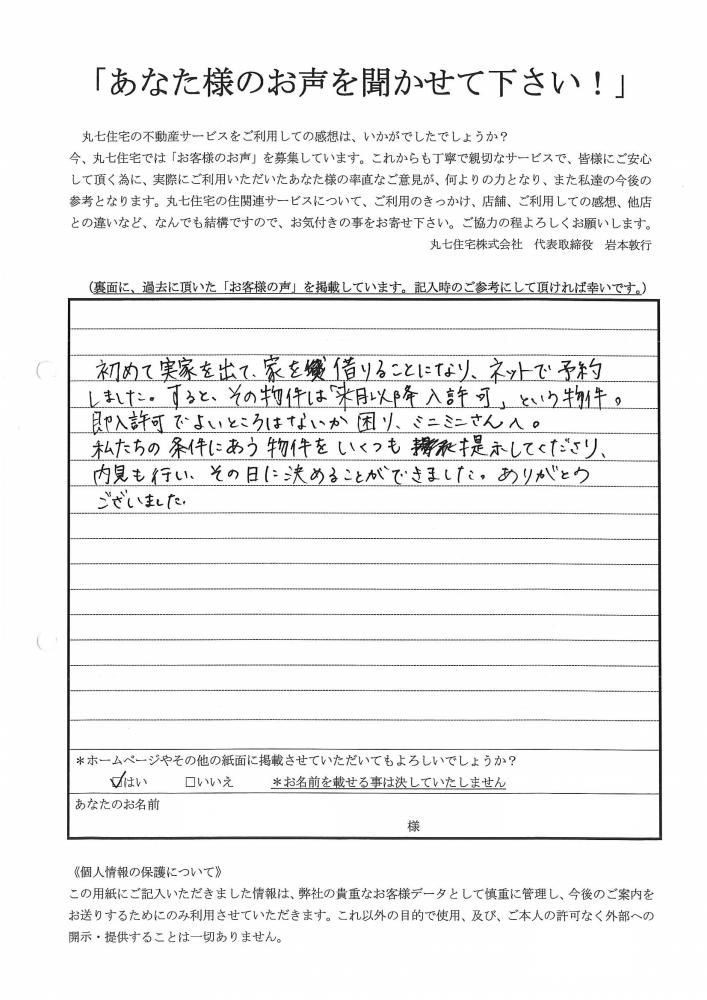 「あなた様のお声を聞かせて下さい！」
丸七住宅の不動産サービスをご利用しての感想は、いかがでしたでしょうか？
今、丸七住宅では「お客様のお声」を募集しています。これからも丁寧で親切なサービスで、皆様にご安心
して頂く為に、実際にご利用いただいたあなた様の率直なご意見が、何よりの力となり、また私達の今後の
参考となります。丸七住宅の住関連サービスについて、ご利用のきっかけ、店舗、ご利用しての感想、他店
との違いなど、なんでも結構ですので、お気付きの事をお寄せ下さい。ご協力の程よろしくお願いします。
丸七住宅株式会社　代表取締役　岩本敦行
（裏面に、過去に頂いた「お客様の声」を掲載しています。記入時のご参考にして頂ければ幸いです。）
初めて実家を出て、家を借りることになり、ネットで予約
しました。すると、その物件は「来月以降入許可」という物件。
即入許可でよいところはないか困り、ミニミニさんへ。
私たちの条件にあう物件をいくつも提示してくださり、
内見も行い、その日に決めることができました。ありがとう
ございました。
＊ホームページやその他の紙面に掲載させていただいてもよろしいでしょうか？
☑はい　□いいえ　＊お名前を載せる事は決していたしません
あなたのお名前
様
《個人情報の保護について》
この用紙にご記入いただきました情報は、弊社の貴重なお客様データとして慎重に管理し、今後のご案内を
お送りするためにのみ利用させていただきます。これ以外の目的で使用、及び、ご本人の許可なく外部への
開示・提供することは一切ありません。